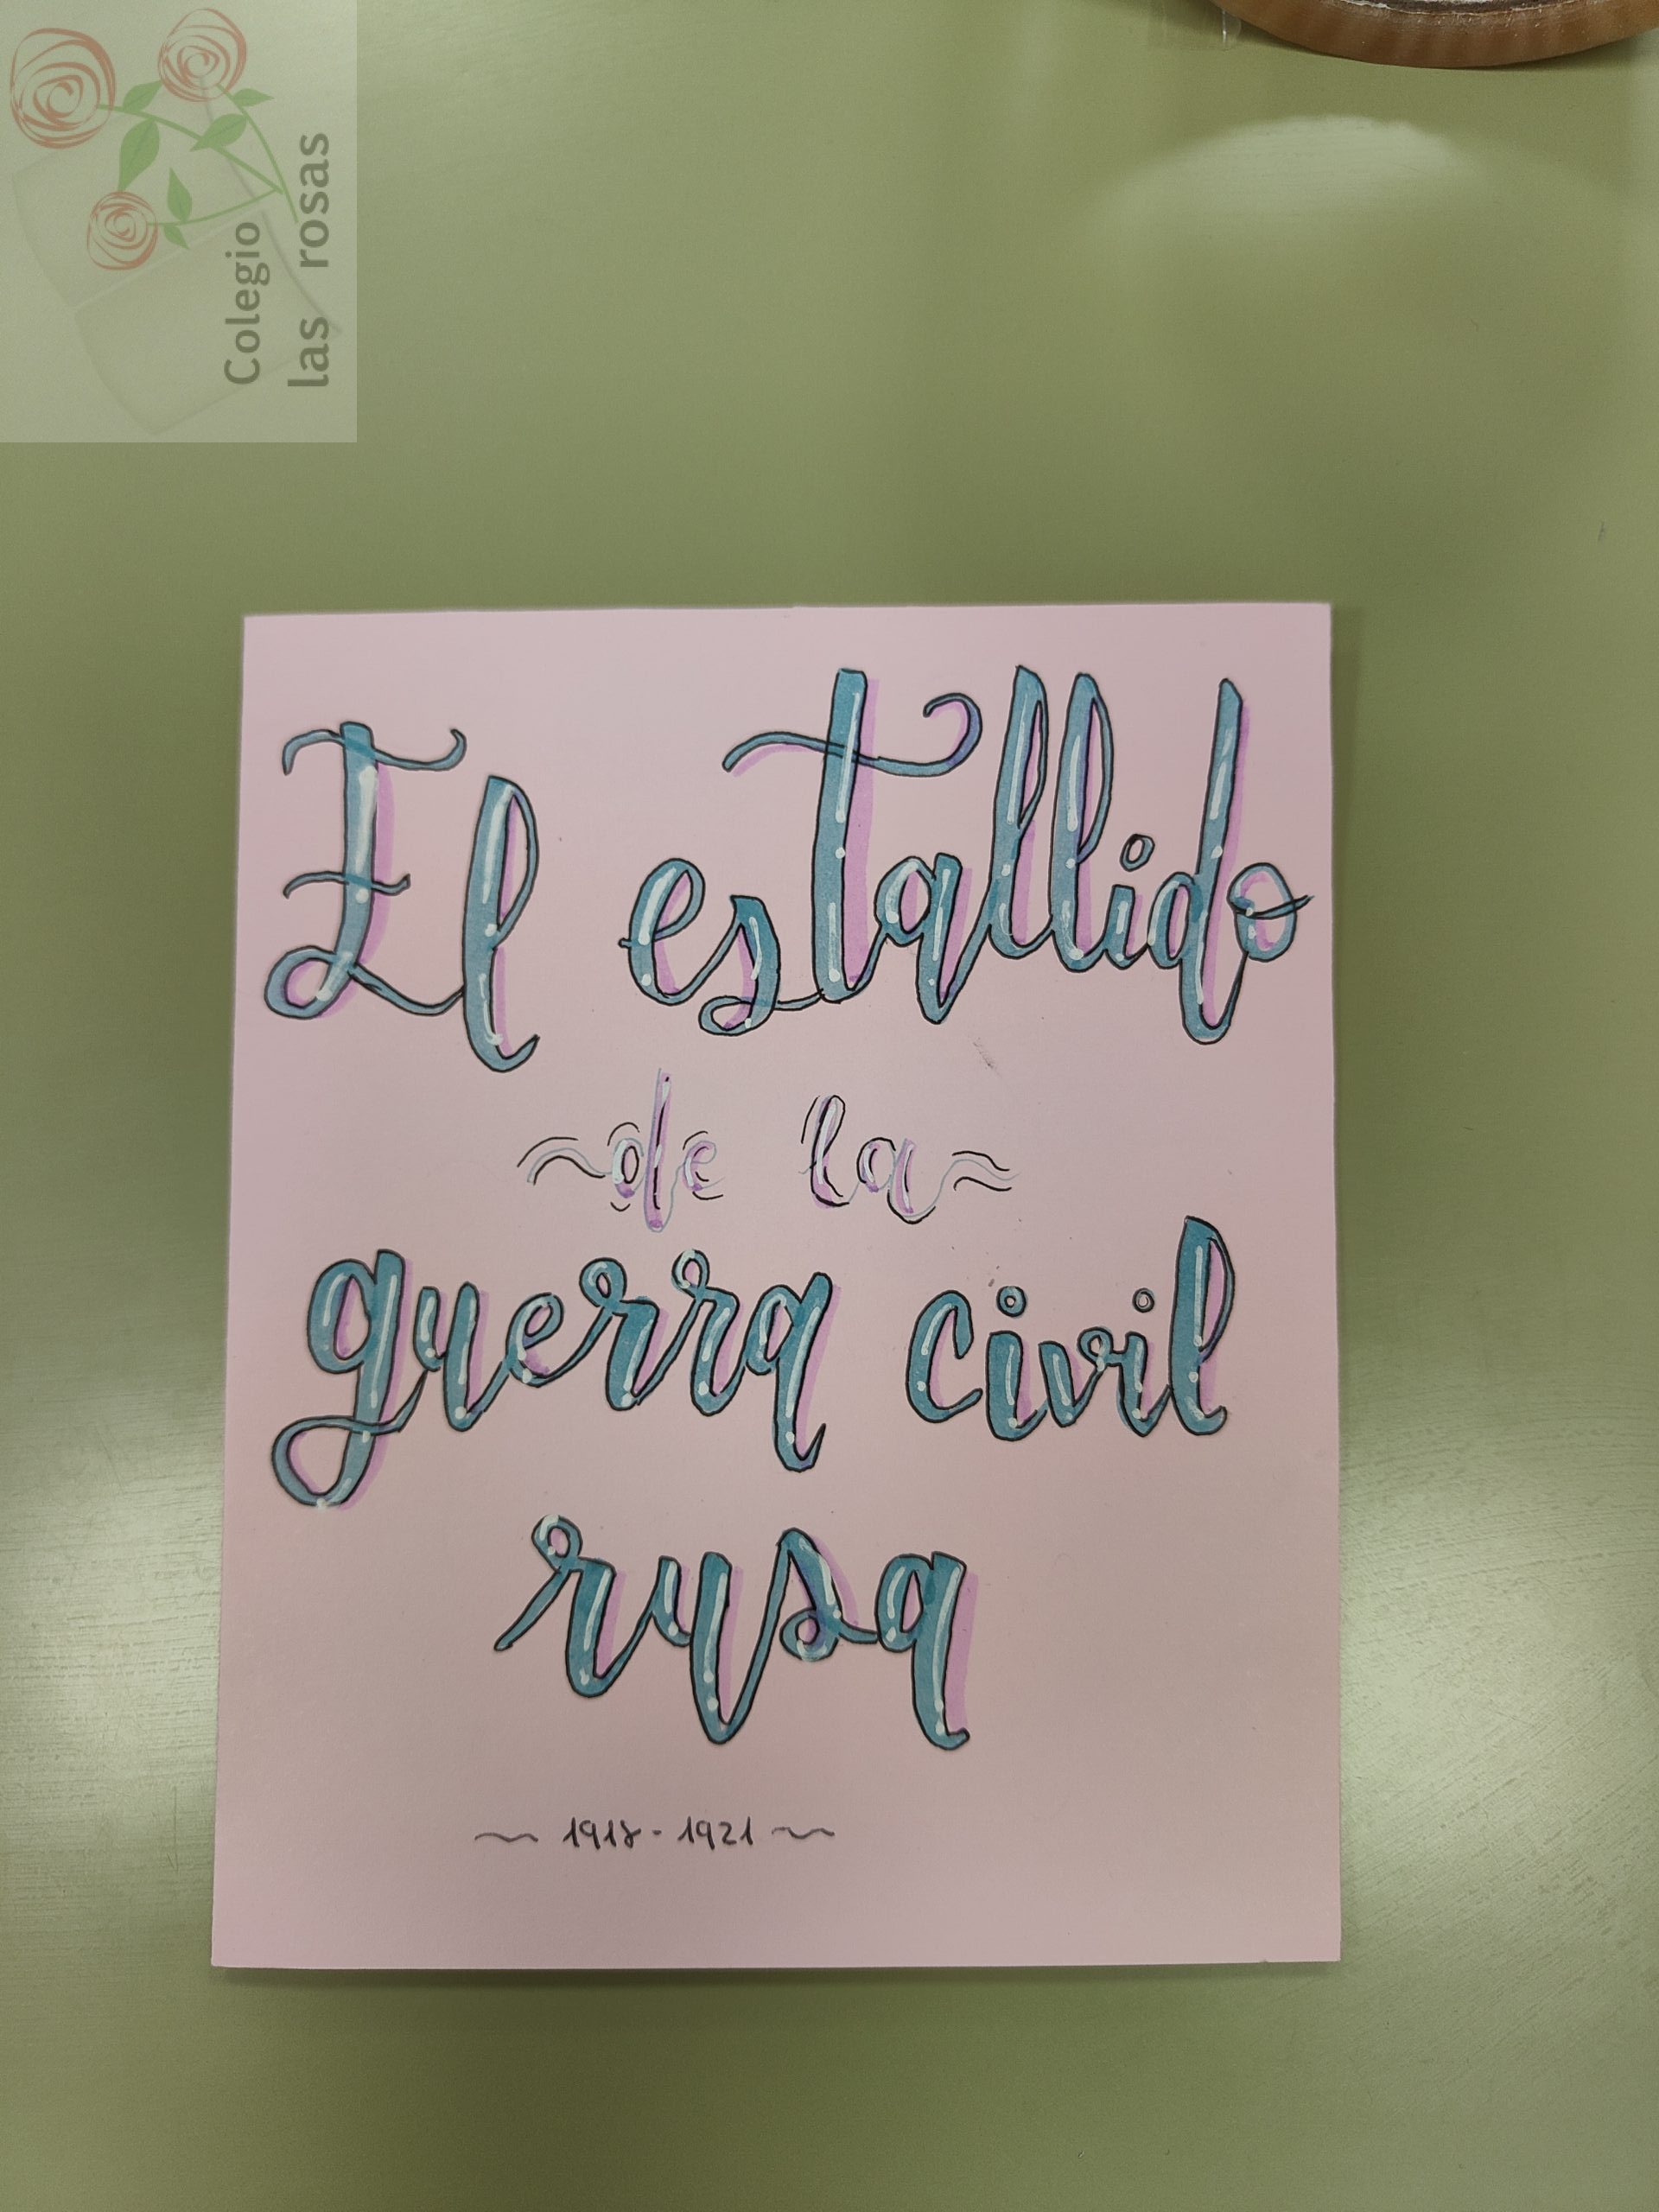 Colegio
las rosas
El estallido
~de la~
guerra civil
rusa
~ 1918 - 1921 ~